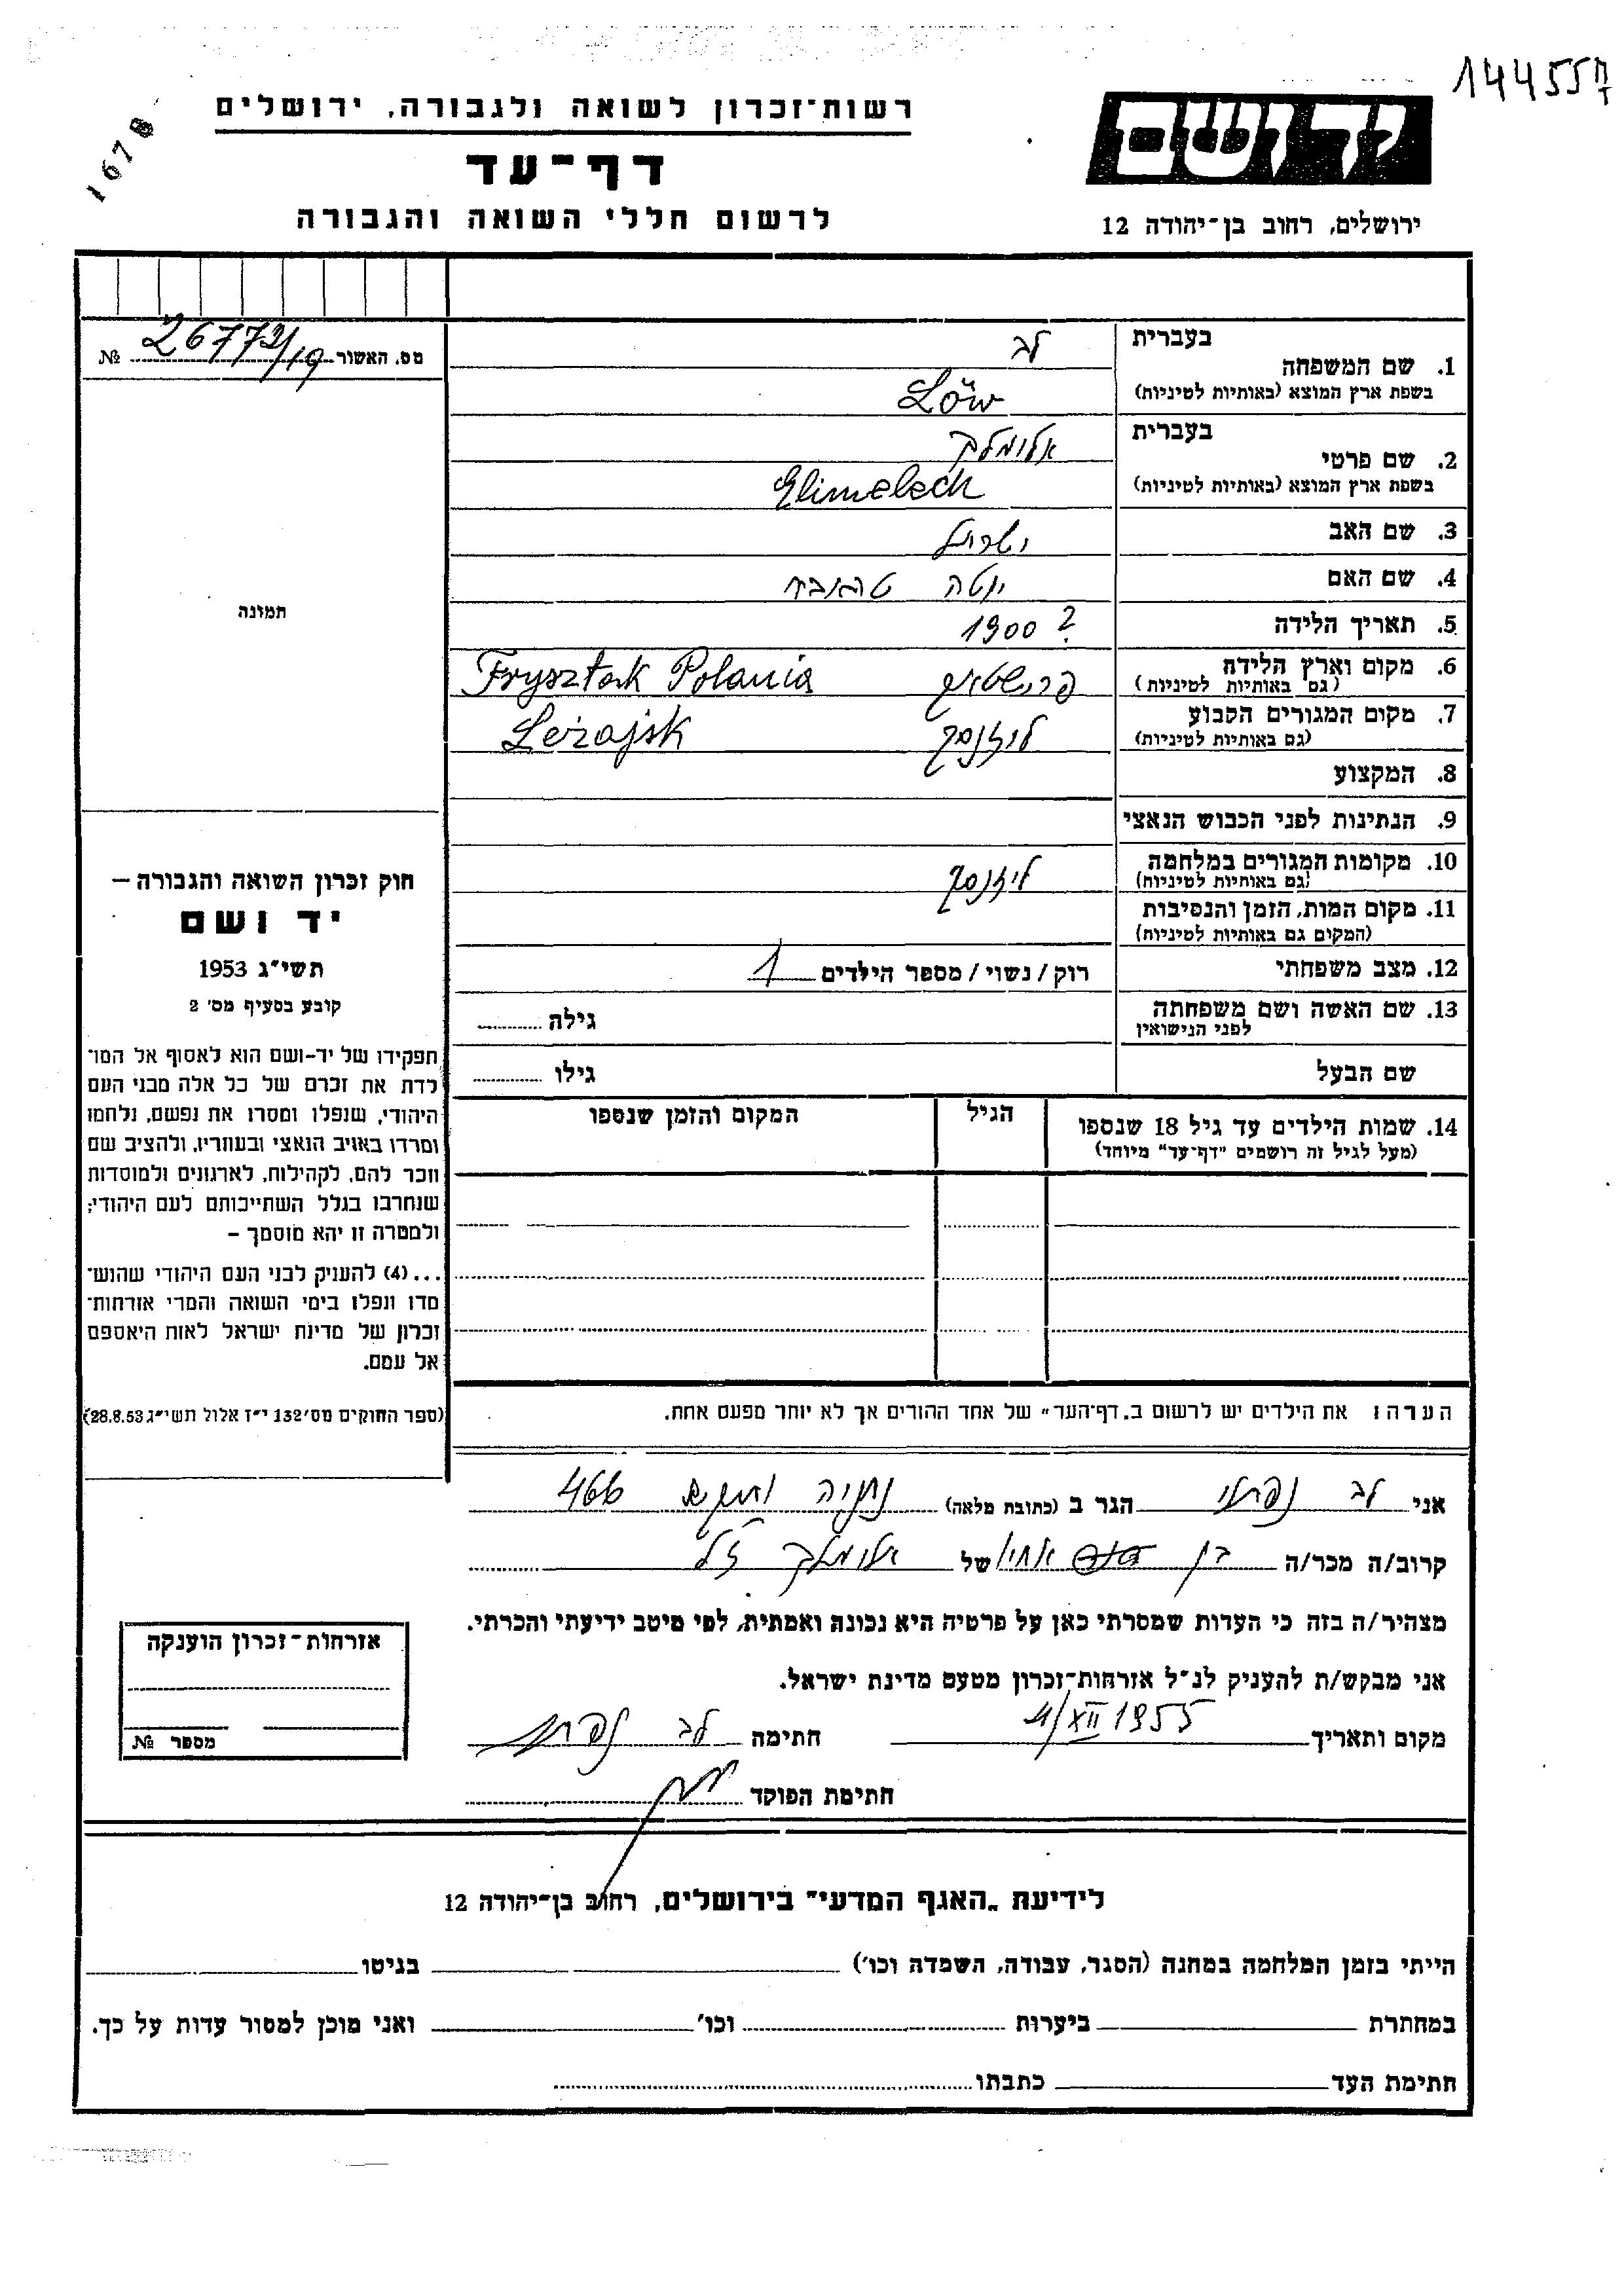 144557
1678
רשות־זכרון לשואה ולגבורה, ירושלים
דף־עד
לרשום חללי השואה והגבורה
יד ושם
ירושלים, רחוב בן־יהודה 12
מס. האשור 26773/19 №
תמונה
חוק זכרון השואה והגבורה –
יד ושם
תשי"ג 1953
קובע בסעיף מס' 2
תפקידו של יד-ושם הוא לאסוף אל המו־
לדת את זכרם של כל אלה מבני העם
היהודי, שנפלו ומסרו את נפשם, נלחמו
ומרדו באויב הנאצי ובעוזריו, ולהציב שם
וזכר להם, לקהילות, לארגונים ולמוסדות
שנחרבו בגלל השתייכותם לעם היהודי;
ולמטרה זו יהא מוסמך –
...(4) להעניק לבני העם היהודי שהוש־
מדו ונפלו בימי השואה והמרי אזרחות־
זכרון של מדינת ישראל לאות היאספם
אל עמם.
(ספר החוקים מס' 132 י"ז אלול תשי"ג 28.8.53)
1. שם המשפחה
בעברית לב
בשפת ארץ המוצא (באותיות לטיניות) Löw
2. שם פרטי
בעברית אלימלך
בשפת ארץ המוצא (באותיות לטיניות) Elimelech
3. שם האב ישראל
4. שם האם יוטה
5. תאריך הלידה 1900 ?
6. מקום וארץ הלידה פרישטאק Frysztak Polania
(גם באותיות לטיניות)
7. מקום המגורים הקבוע ליזנסק Leżajsk
(גם באותיות לטיניות)
8. המקצוע
9. הנתינות לפני הכבוש הנאצי
10. מקומות המגורים במלחמה ליזנסק
(גם באותיות לטיניות)
11. מקום המות, הזמן והנסיבות
(המקום גם באותיות לטיניות)
12. מצב משפחתי רוק / נשוי / מספר הילדים 1
13. שם האשה ושם משפחתה
לפני הנישואין
גילה
שם הבעל גילו
14. שמות הילדים עד גיל 18 שנספו
(מעל לגיל זה רושמים "דף־עד" מיוחד)
הגיל
המקום והזמן שנספו
הערה: את הילדים יש לרשום ב„דף־העד" של אחד ההורים אך לא יותר מפעם אחת.
אני לב נפתלי הגר ב (כתובת מלאה) נתניה 466
קרוב/ה מכר/ה בן אחיו של אלימלך ז"ל
מצהיר/ה בזה כי העדות שמסרתי כאן על פרטיה היא נכונה ואמתית, לפי מיטב ידיעתי והכרתי.
אני מבקש/ת להעניק לנ"ל אזרחות־זכרון מטעם מדינת ישראל.
מקום ותאריך 4/XII 1955 חתימה לב נפתלי
חתימת הפוקד
אזרחות־זכרון הוענקה
מספר №
לידיעת „האגף המדעי" בירושלים, רחוב בן־יהודה 12
הייתי בזמן המלחמה במחנה (הסגר, עבודה, השמדה וכו') בגיטו
במחתרת ביערות וכו' ואני מוכן למסור עדות על כך.
חתימת העד כתבתו